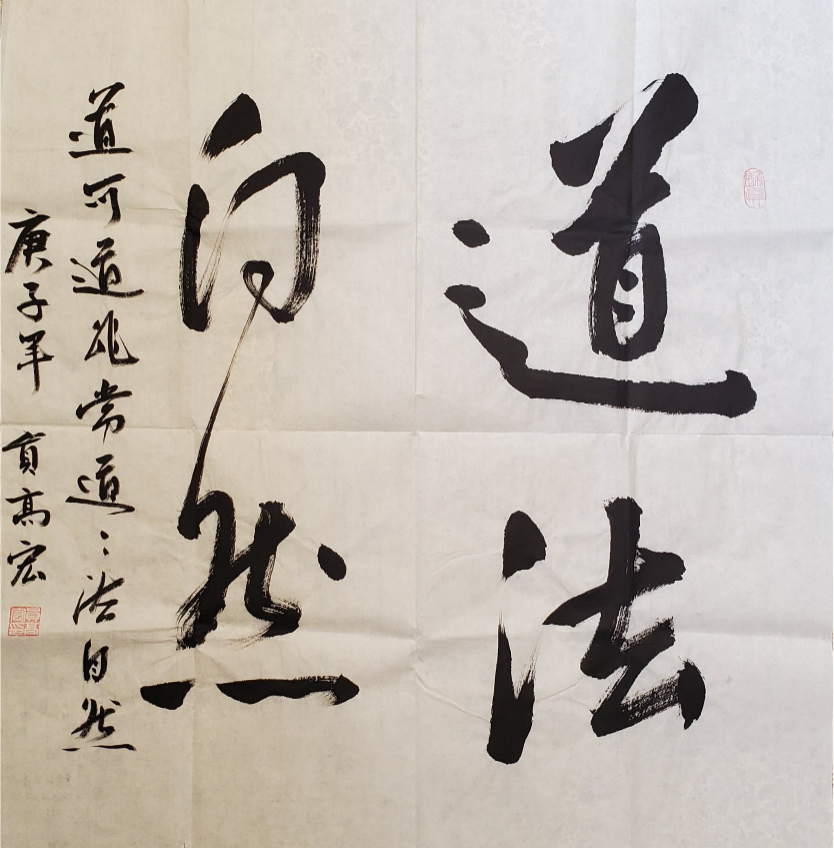 道法
自然
道可道非常道〻法自然
庚子年 貟高宏